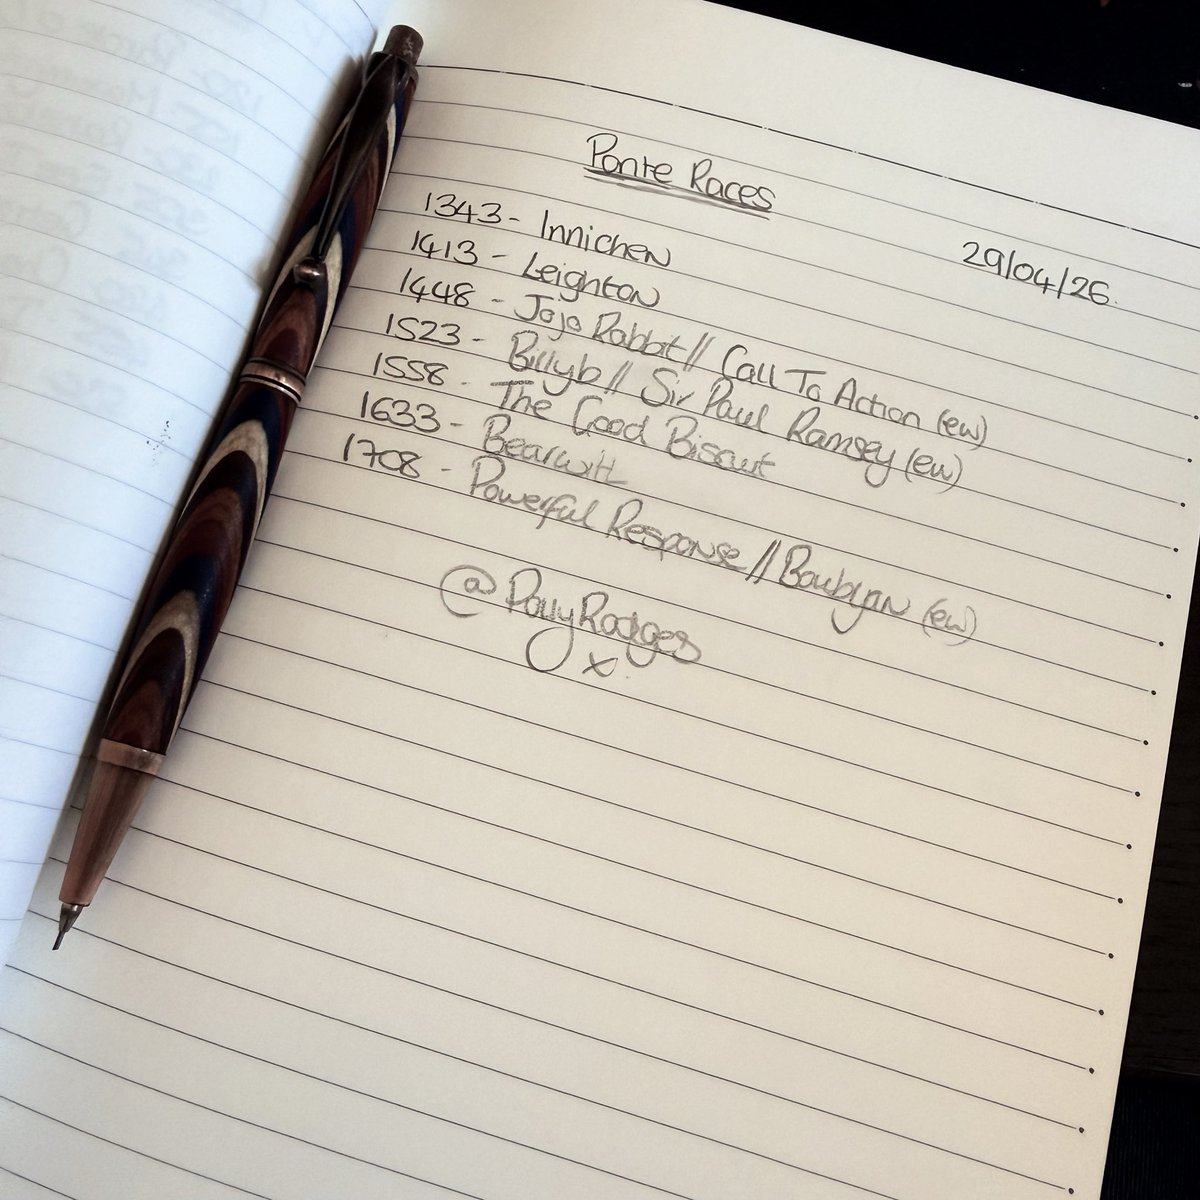 Ponte Races
29/04/26.
1343 - Innichen
1413 - Leighton
1448 - Jojo Rabbit // Call To Action (ew)
1523 - Billyb // Sir Paul Ramsey (ew)
1558 - The Good Biscuit
1633 - Bearwith
1708 - Powerful Response // Boubyan (ew)
@PollyRodges
x.